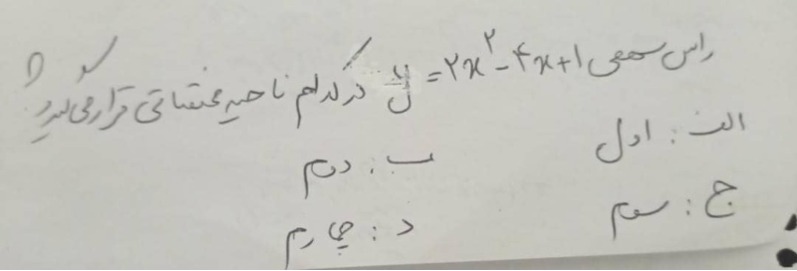 راس سهمی y = ۲x^۲ - ۴x + ۱ در کدام ناحیه مختصاتی قرار می گیرد؟
الف: اول
ب: دوم
ج: سوم
د: چهارم